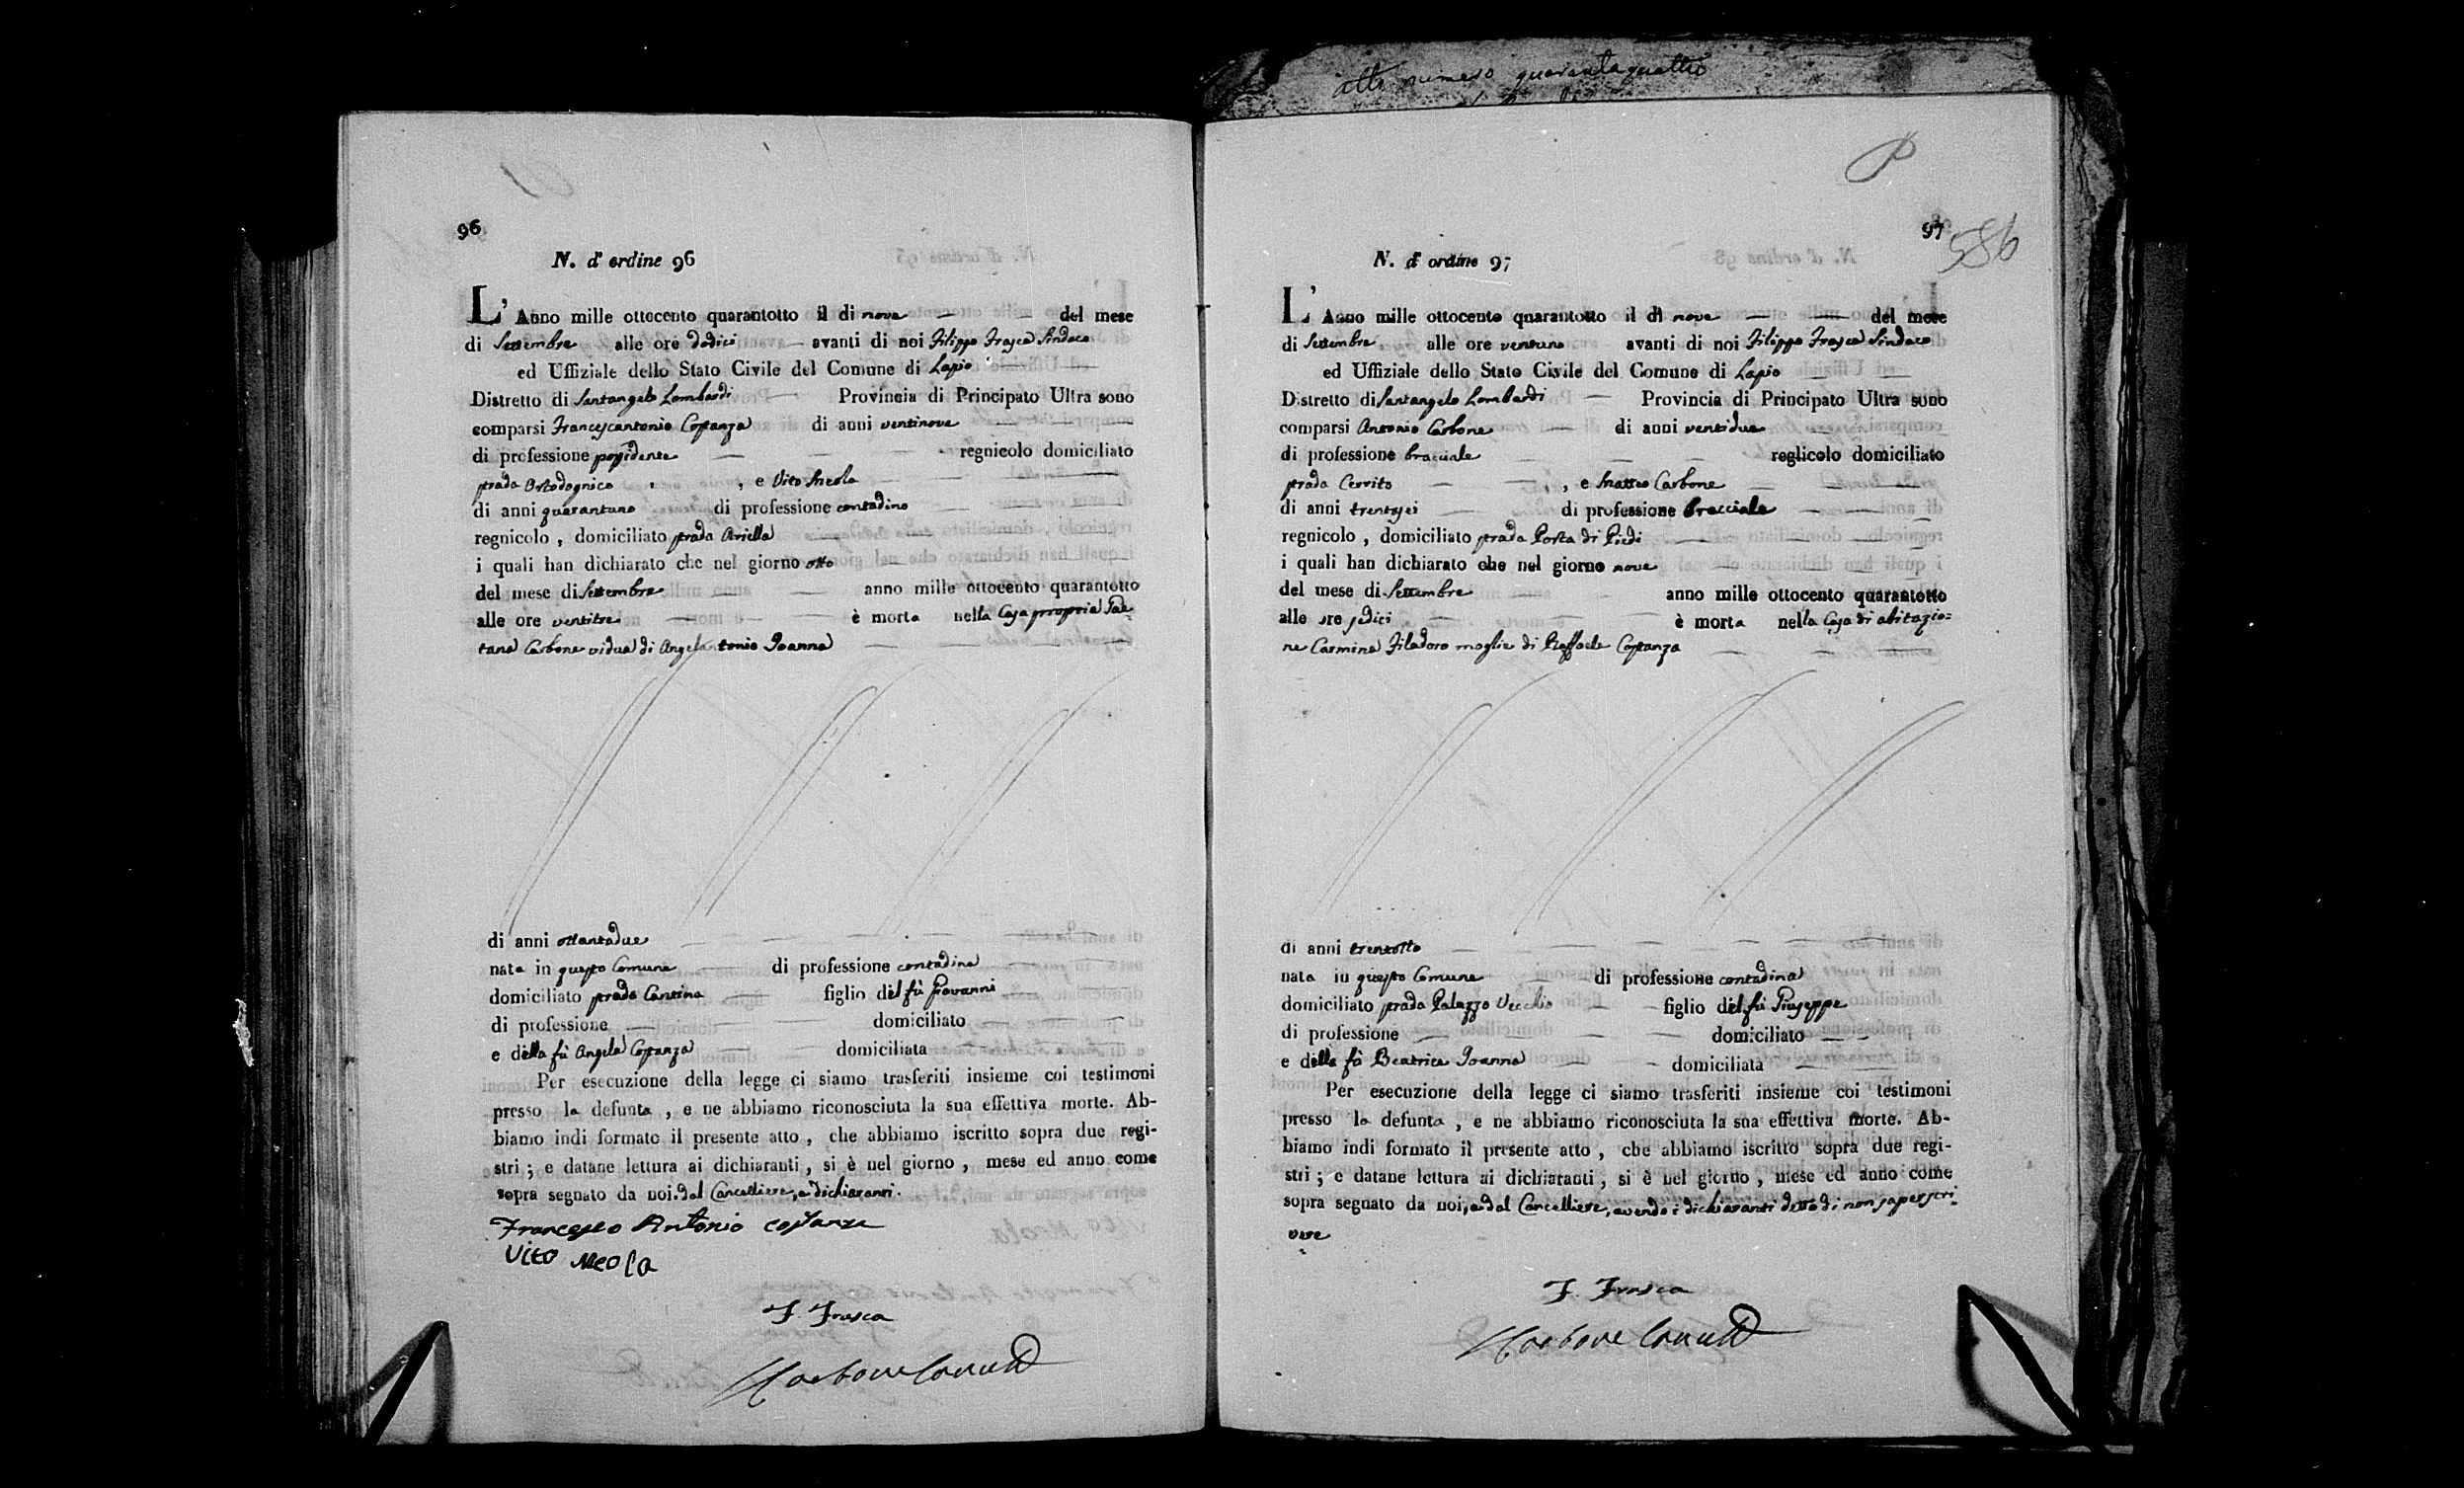 atto numero quarantaquattro
96
N. d' ordine 96
L' Anno mille ottocento quarantotto il di nove del mese
di Settembre alle ore dodici avanti di noi Filippo Frasca Sindaco
ed Uffiziale dello Stato Civile del Comune di Lapio
Distretto di Santangelo Lombardi Provincia di Principato Ultra sono
comparsi Francescantonio Costanza di anni ventinove
di professione possidente regnicolo domiciliato
strada Ortodognico , e Vito Meola
di anni quarantuno di professione contadino
regnicolo , domiciliato strada Ariella
i quali han dichiarato che nel giorno otto
del mese di Settembre anno mille ottocento quarantotto
alle ore ventitre è morta nella Casa propria Gae=
tana Carbone vidua di Angelantonio Joanna
di anni ottantadue
nata in questo Comune di professione contadina
domiciliato strada Cantina figlio del fù Giovanni
di professione domiciliato
e della fù Angela Costanza domiciliata
Per esecuzione della legge ci siamo trasferiti insieme coi testimoni
presso la defunta , e ne abbiamo riconosciuta la sua effettiva morte. Ab-
biamo indi formato il presente atto , che abbiamo iscritto sopra due regi-
stri ; e datane lettura ai dichiaranti , si è nel giorno , mese ed anno come
sopra segnato da noi, dal Cancelliere, e dichiaranti.
Francesco Antonio Costanza
Vito Meola
F. Frasca
Carbone Canc
P
97
586
N. d' ordine 97
L' Anno mille ottocento quarantotto il di nove del mese
di Settembre alle ore ventuno avanti di noi Filippo Frasca Sindaco
ed Uffiziale dello Stato Civile del Comune di Lapio
Distretto di Santangelo Lombardi Provincia di Principato Ultra sono
comparsi Antonio Carbone di anni ventidue
di professione bracciale reglicolo domiciliato
strada Cerrito , e Matteo Carbone
di anni trentasei di professione bracciale
regnicolo , domiciliato strada Porta di Piedi
i quali han dichiarato che nel giorno nove
del mese di Settembre anno mille ottocento quarantotto
alle ore sedici è morta nella Casa di abitazio=
ne Carmina Filadoro moglie di Raffaele Costanza
di anni trentotto
nata in questo Comune di professione contadina
domiciliato strada Palazzo Vecchio figlio del fù Giuseppe
di professione domiciliato
e della fù Beatrice Joanna domiciliata
Per esecuzione della legge ci siamo trasferiti insieme coi testimoni
presso la defunta , e ne abbiamo riconosciuta la sua effettiva morte. Ab-
biamo indi formato il presente atto , che abbiamo iscritto sopra due regi-
stri ; e datane lettura ai dichiaranti , si è nel giorno , mese ed anno come
sopra segnato da noi, e dal Cancelliere, avendo i dichiaranti detto di non saper scri=
vere
F. Frasca
Carbone Canc